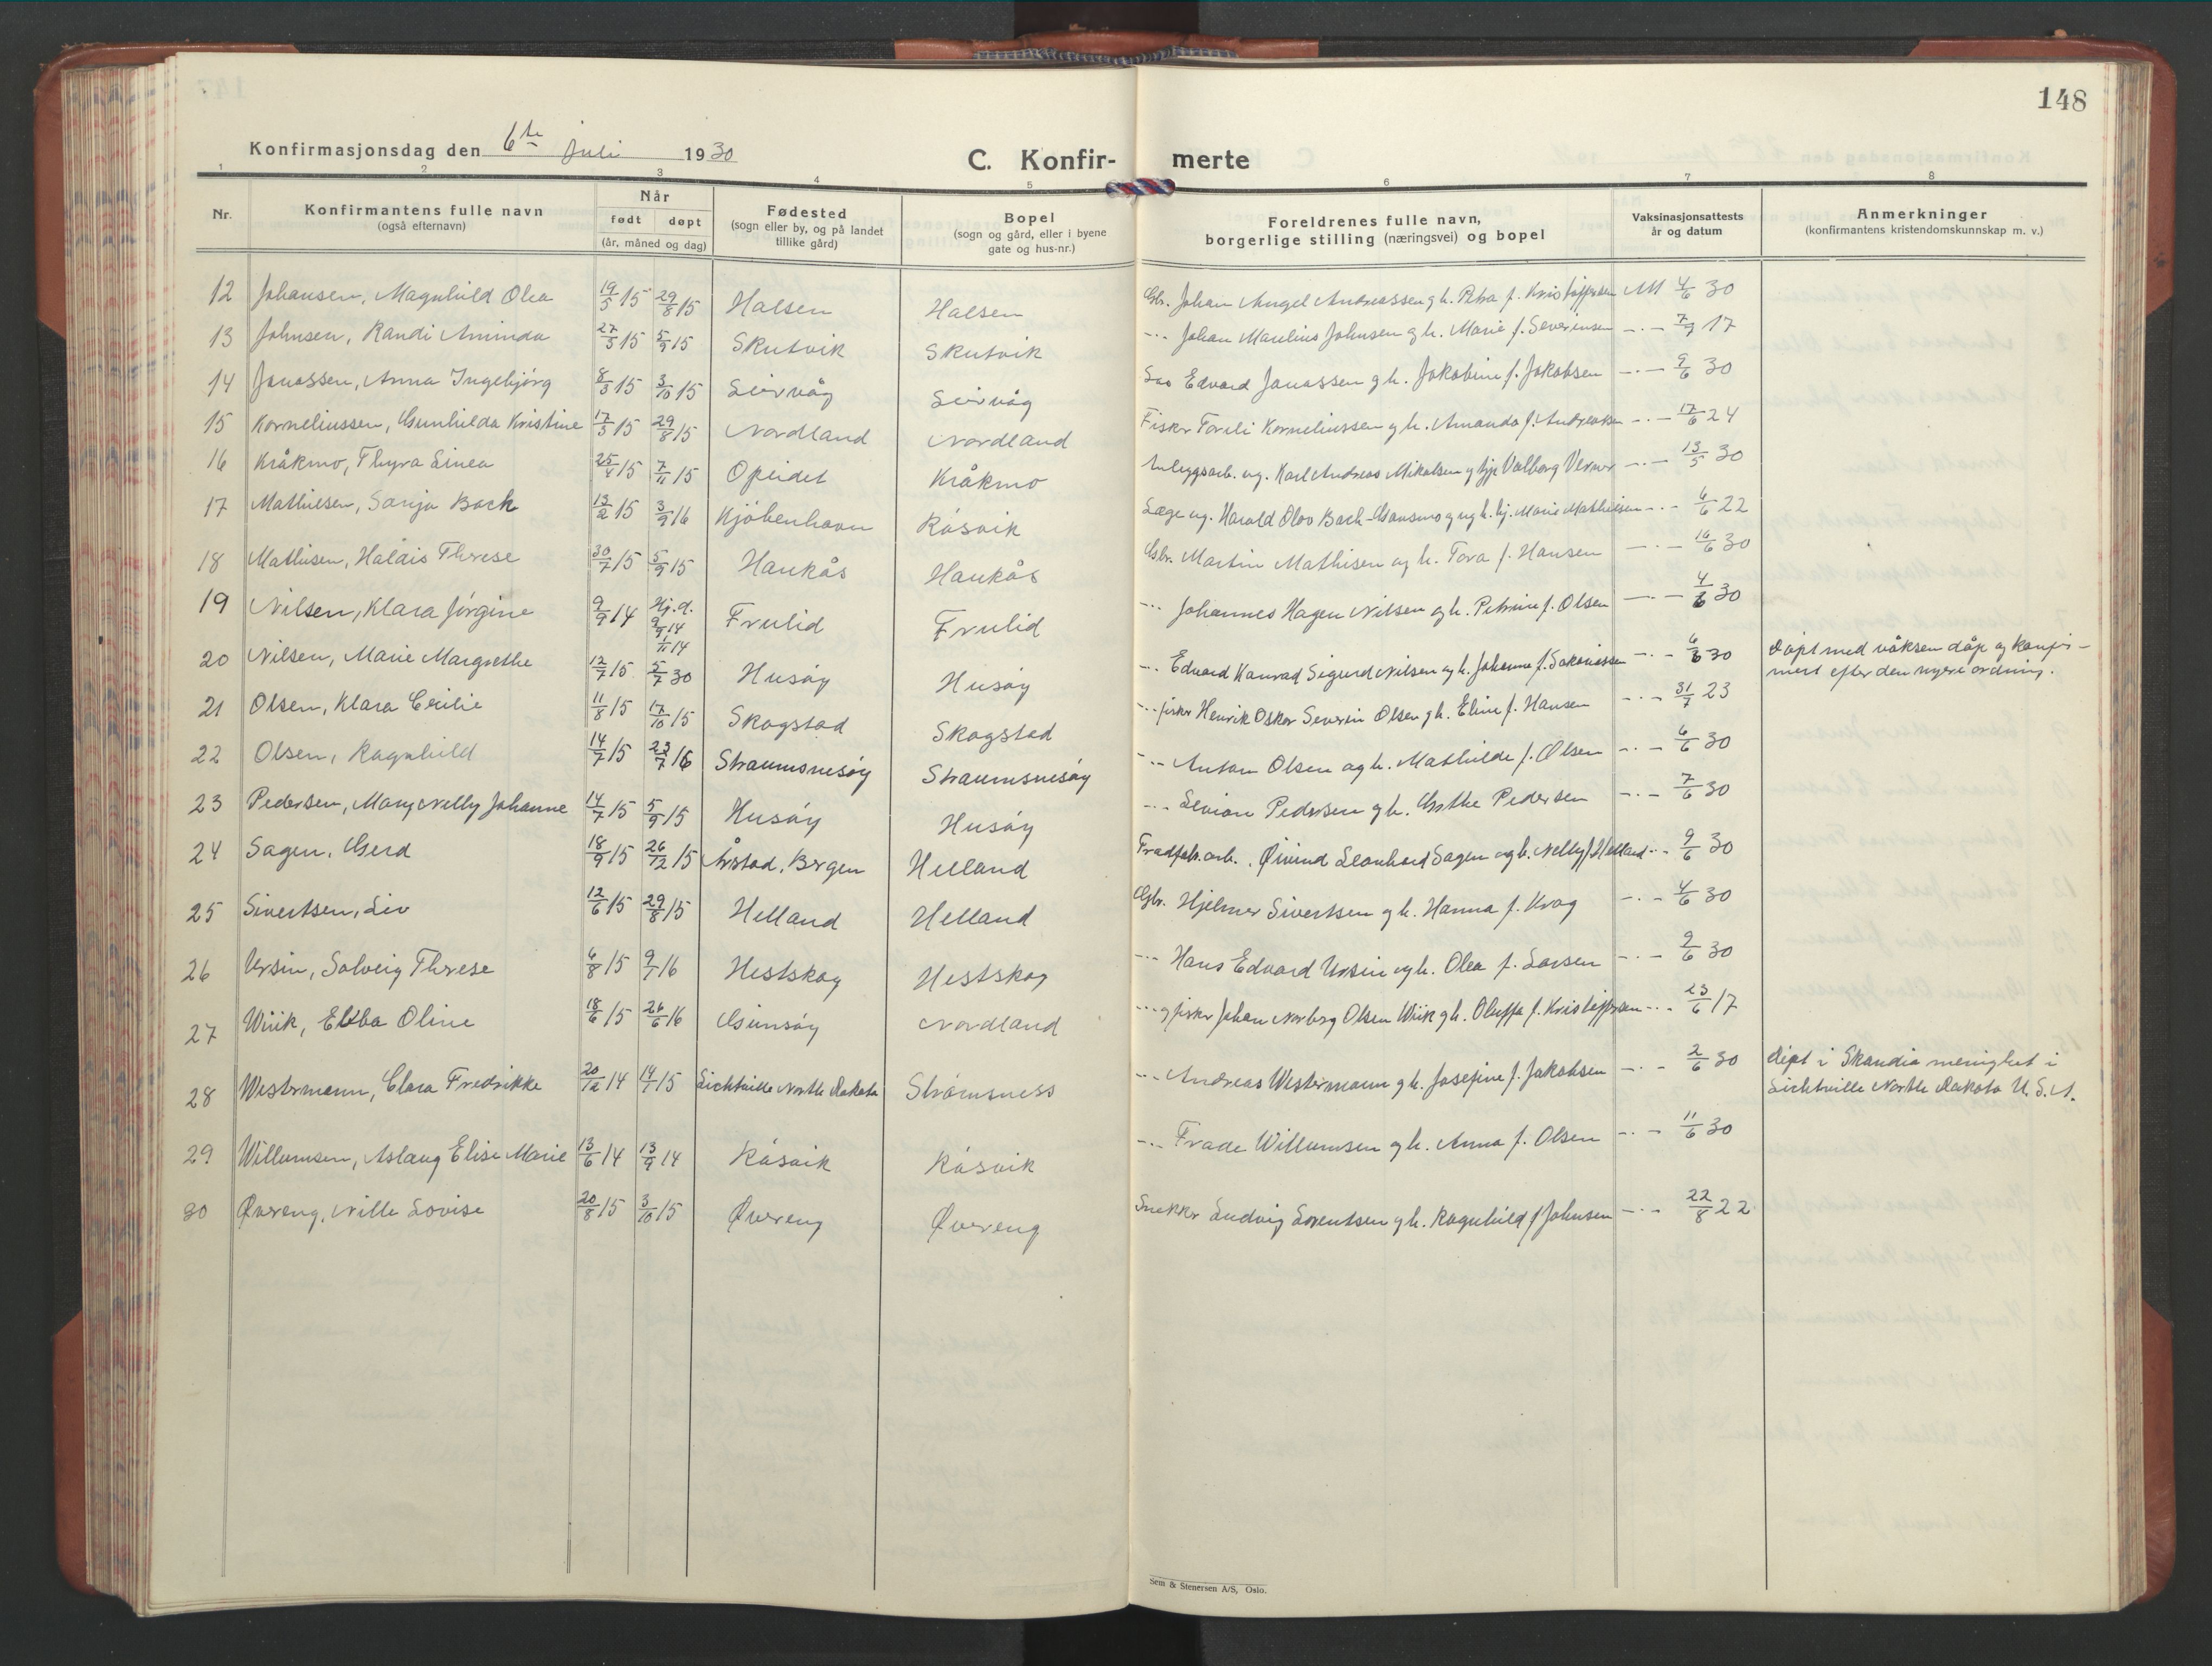 148
Konfirmasjonsdag den 6te juli 1930
C. Konfir- merte
1 2 3 4 5 6 7 8
Nr.
Konfirmantens fulle navn
(også efternavn)
Når
født døpt
(år, måned og dag)
Fødested
(sogn eller by, og på landet
tillike gård)
Bopel
(sogn og gård, eller i byene
gate og hus-nr.)
Foreldrenes fulle navn,
borgerlige stilling (næringsvei) og bopel
Vaksinasjonsattests
år og datum
Anmerkninger
(konfirmantens kristendomskunnskap m. v.)
12 Johansen, Magnhild Olea 19/5 15 29/8 15 Halsen Halsen Gbr. Johan Angel Andreassen g h. Petra f. Kristoffersen M 4/6 30
13 Johnsen, Randi Aminda 27/5 15 5/9 15 Skutvik Skutvik -..- Johan Maulius Johnsen g h. Marie f. Severinsen -..- 7/9 17
14 Jonassen, Anna Ingebjørg 8/3 15 3/10 15 Leirvåg Leirvåg Edvard Jonassen g h. Jakobine f. Jakobsen -..- 9/6 30
15 Korneliussen, Gunhilda Kristine 17/5 15 29/8 15 Nordland Nordland Fisker Toreli Korneliussen g h. Amanda f. Andreassen -..- 17/6 24
16 Kråkmo, Thyra Linea 25/4 15 7/11 15 Opeidet Kråkmo Anleggsarb. ug. Karl Andreas Mikalsen g pike Valborg -..- 13/5 30
17 Mathiesen, Sonja Bach 13/2 15 3/9 16 Kjøbenhavn Råsvik Læge ug. Harald Olov Bach-Gansmo g ug h. hj. Marie Mathiesen -..- 6/6 22
18 Mathisen, Haldis Therese 30/7 15 5/9 15 Haukås Haukås Gbr. Martin Mathisen og h. Tora f. Hansen -..- 16/6 30
19 Nilsen, Klara Jørgine 9/9 14 Hj.d. 9/9 14 1/11 14 Frulid Frulid -..- Johannes Hagen Nilsen og h. Petrine f. Olsen -..- 4/6 30
20 Nilsen, Marie Margrethe 12/7 15 5/7 30 Husøy Husøy -..- Edvard Konrad Sigurd Nilsen og h. Johanne f. Sakariassen -..- 6/6 30 Døpt med våksen dåp og konfir-
mert efter den nyere ordning.
21 Olsen, Klara Cecilie 11/8 15 17/10 15 Skogstad Skogstad -..- fisker Henrik Oskar Severin Olsen g h. Eline f. Hansen -..- 31/7 23
22 Olsen, Ragnhild 14/7 15 23/7 16 Straumsnesøy Straumsnesøy -..- Anton Olsen og h. Mathilde f. Olsen -..- 6/6 30
23 Pedersen, Mary Nelly Johanne 14/7 15 5/9 15 Husøy Husøy -..- Levion Pedersen g h. Gjethe Pedersen -..- 7/6 30
24 Sagen, Gerd 18/9 15 26/12 15 Årstad, Bergen Helland Trådfab.arb. Øivind Leonhard Sagen og h. Nelly f. Helland -..- 9/6 30
25 Sivertsen, Liv 12/6 15 29/8 15 Helland Helland Gbr. Hjelmer Sivertsen g h. Hanna f. Krog -..- 4/6 30
26 Ursin, Solveig Therese 6/8 15 9/1 16 Hestskog Hestskog -..- Hans Edvard Ursin og h. Olea f. Larsen -..- 9/6 30
27 Wiik, Ebba Oline 18/6 15 26/6 16 Gimsøy Nordland -..- g fisker Johan Norberg Olsen Wiik g h. Oluffa f. Kristoffersen -..- 23/6 17
28 Westermann, Clara Fredrikke 20/12 14 14/1 15 Lichtville North Dakota Strømsness -..- Andreas Westermann g h. Josefine f. Jakobsen -..- 2/6 30 døpt i Skandia menighet i
Lichtville North Dakota U.S.A.
29 Willumsen, Aslaug Elise Marie 13/6 14 13/9 14 Råsvik Råsvik -..- Frade Willumsen g h. Anna f. Olsen -..- 11/6 30
30 Øvereng, Nille Lovise 20/8 15 3/10 15 Øvereng Øvereng Snekker Ludvig Lorentsen g h. Ragnhild f Johnsen -..- 22/8 22
Sem & Stenersen A/S, Oslo.